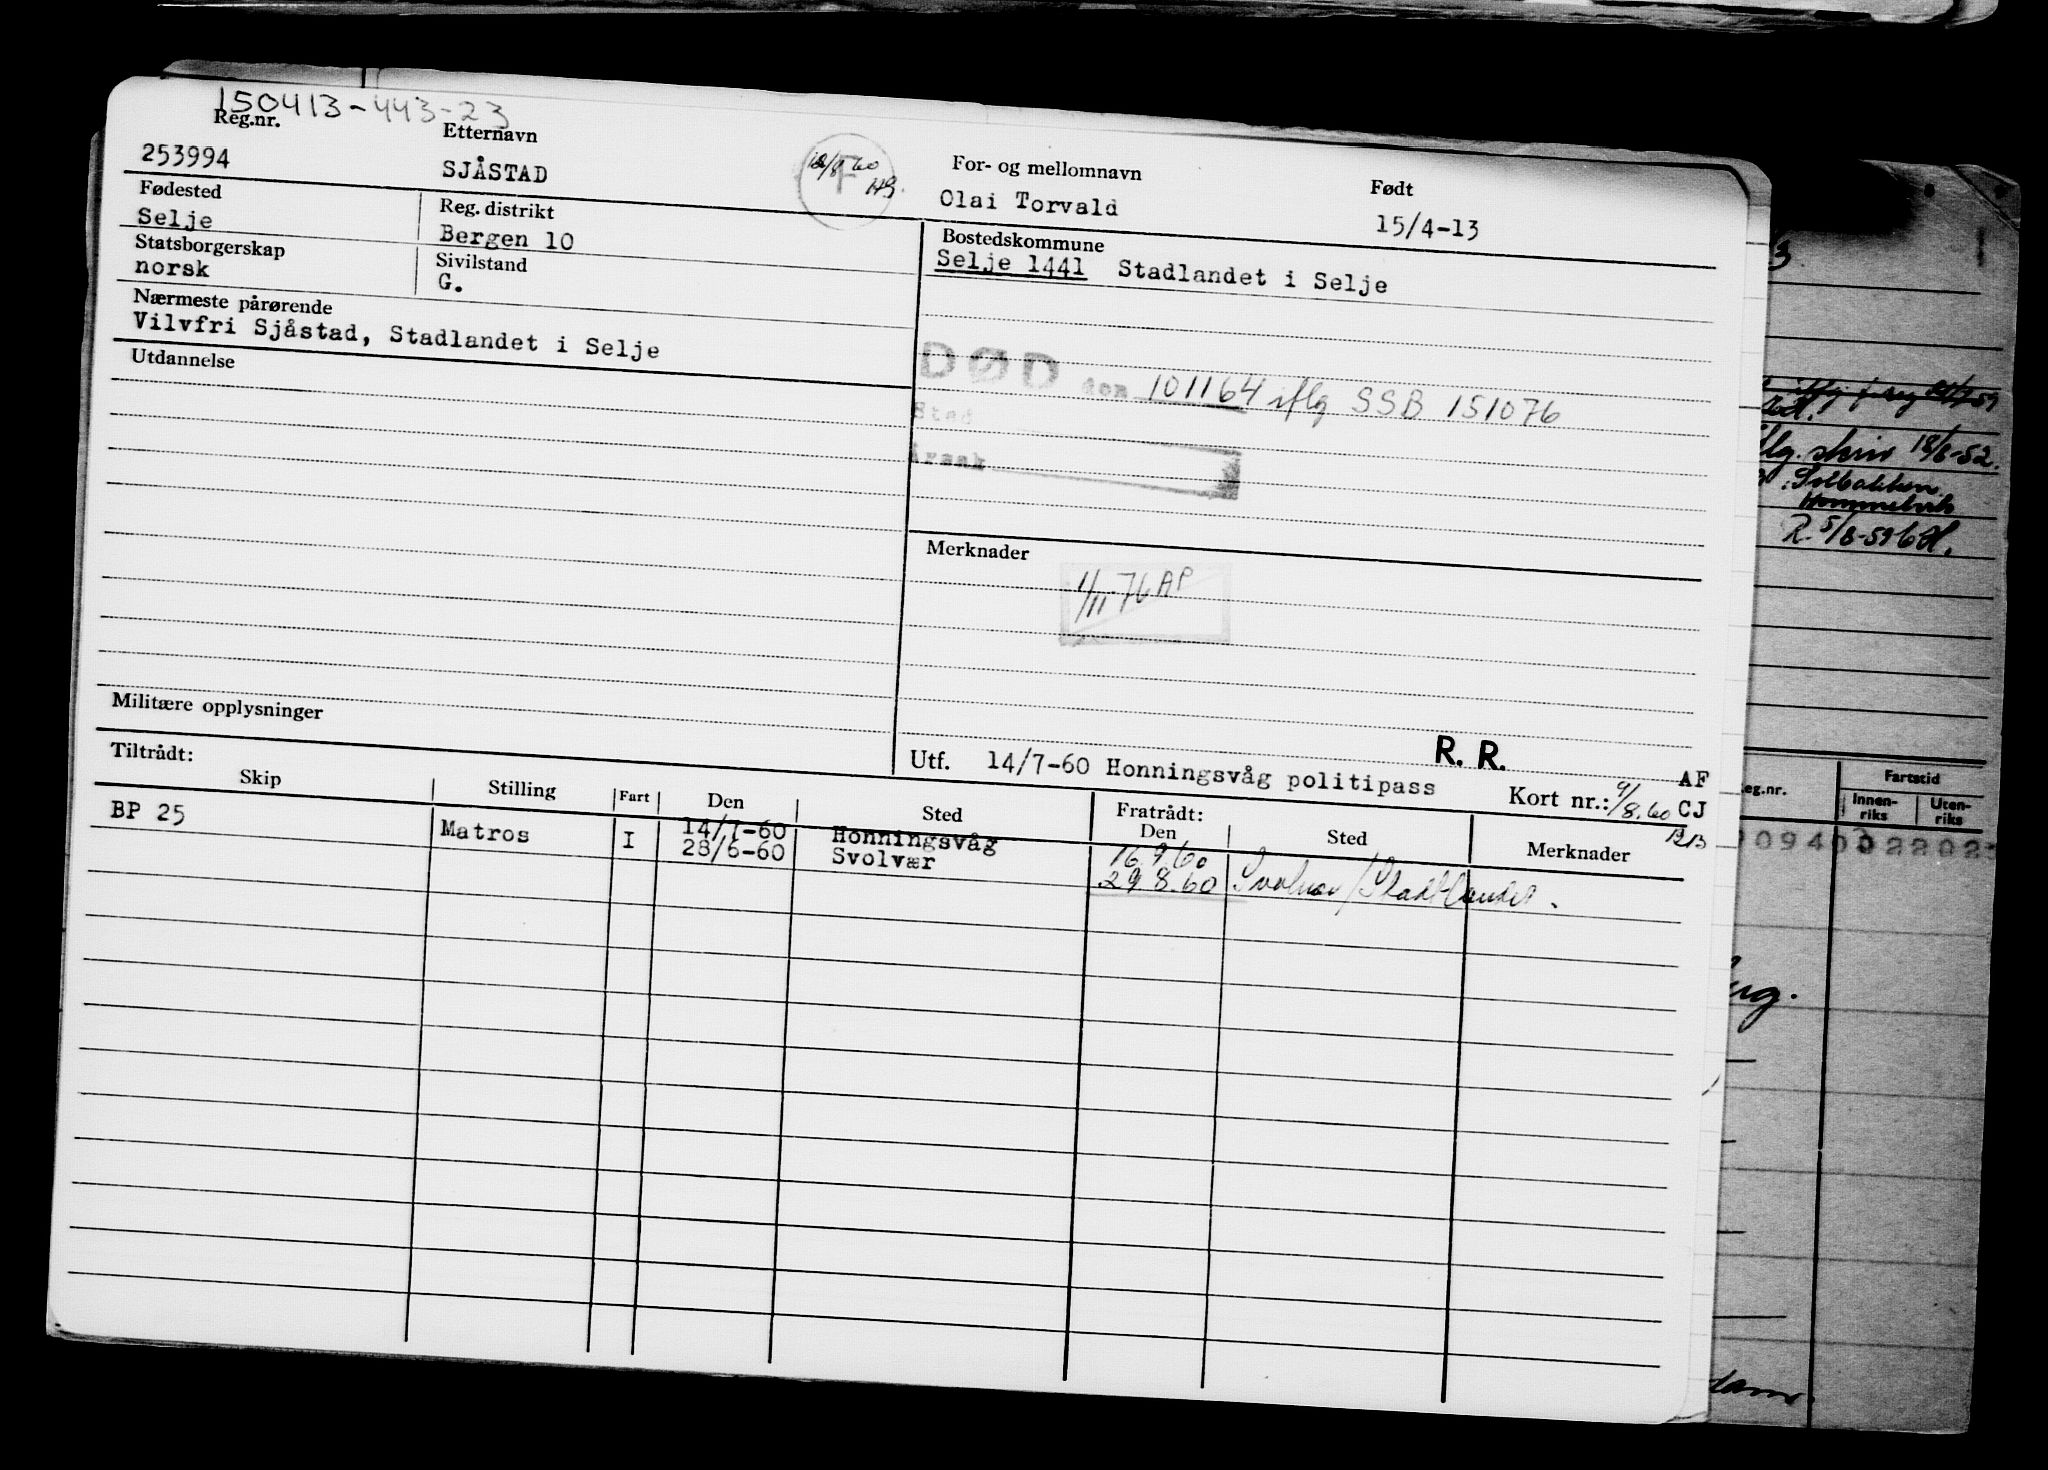 150413-443-23
Reg.nr. Etternavn For- og mellomnavn Født
253994 SJÅSTAD 12/8 60 HG. Olai Torvald 15/4-13
Fødested Reg. distrikt Bostedskommune
Selje Bergen 10 Selje 1441 Stadlandet i Selje
Statsborgerskap Sivilstand
norsk G.
Nærmeste pårørende
Vilvfri Sjåstad, Stadlandet i Selje
Utdannelse
DØD den 101164 iflg SSB 151076
Sted
Årsak
Merknader
1/11-76 AP
Militære opplysninger
R. R.
Utf. 14/7-60 Honningsvåg politipass AF
Kort nr.: 9/8.60 CJ
Tiltrådt: Fratrådt:
Skip Stilling Fart Den Sted Den Sted Merknader
BP 25 Matros I 14/7-60 Honningsvåg 16.7.60
28/6-60 Svolvær 29 8.60 Svolvær/Stadtlandet.
3.
iflg. skriv 18/8-52.
Solbakken
Hommelvik
R. 5/8-59 bH.
Reg.nr. Fartstid
Innen-riks Uten-riks